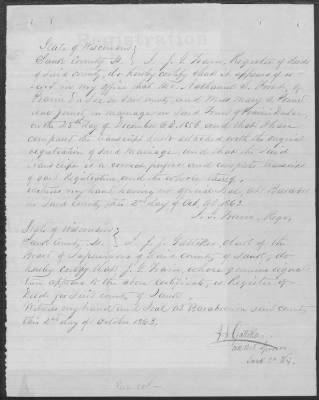 State of Wisconsin }
Sauk County SS. } I, J. I. Waern, Register of Deeds
of said county, do hereby certify that it appears of re-
cord in my office that Mr. Nathaniel S.
Prairie du Sac in said county, and Miss Mary
were joined in marriage in said Town of Prairie du Sac,
on the 25th day of December AD. 1856 and that I have
compared the transcript hereto attached with the original
registration of said marriage and that the said
transcript is a correct perfect and complete transcript
of said Registration, and the whole thereof.
Witness my hand, having no official Seal, at Baraboo
in said County this 2nd day of Oct. AD. 1863.
J. I. Waern, Regr.
State of Wisconsin }
Sauk County, SS. } I, J. J. Gattiker, clerk of the
Board of Supervisors of said county of Sauk, do
hereby certify that J. I. Waern, whose genuine signa
ture appears to the above certificate, is Register of
Deeds for said county of Sauk.
Witness my hand and Seal at Baraboo in said county
this 2nd day of October 1863.
J. J. Gattiker
Clerk
Sauk Co